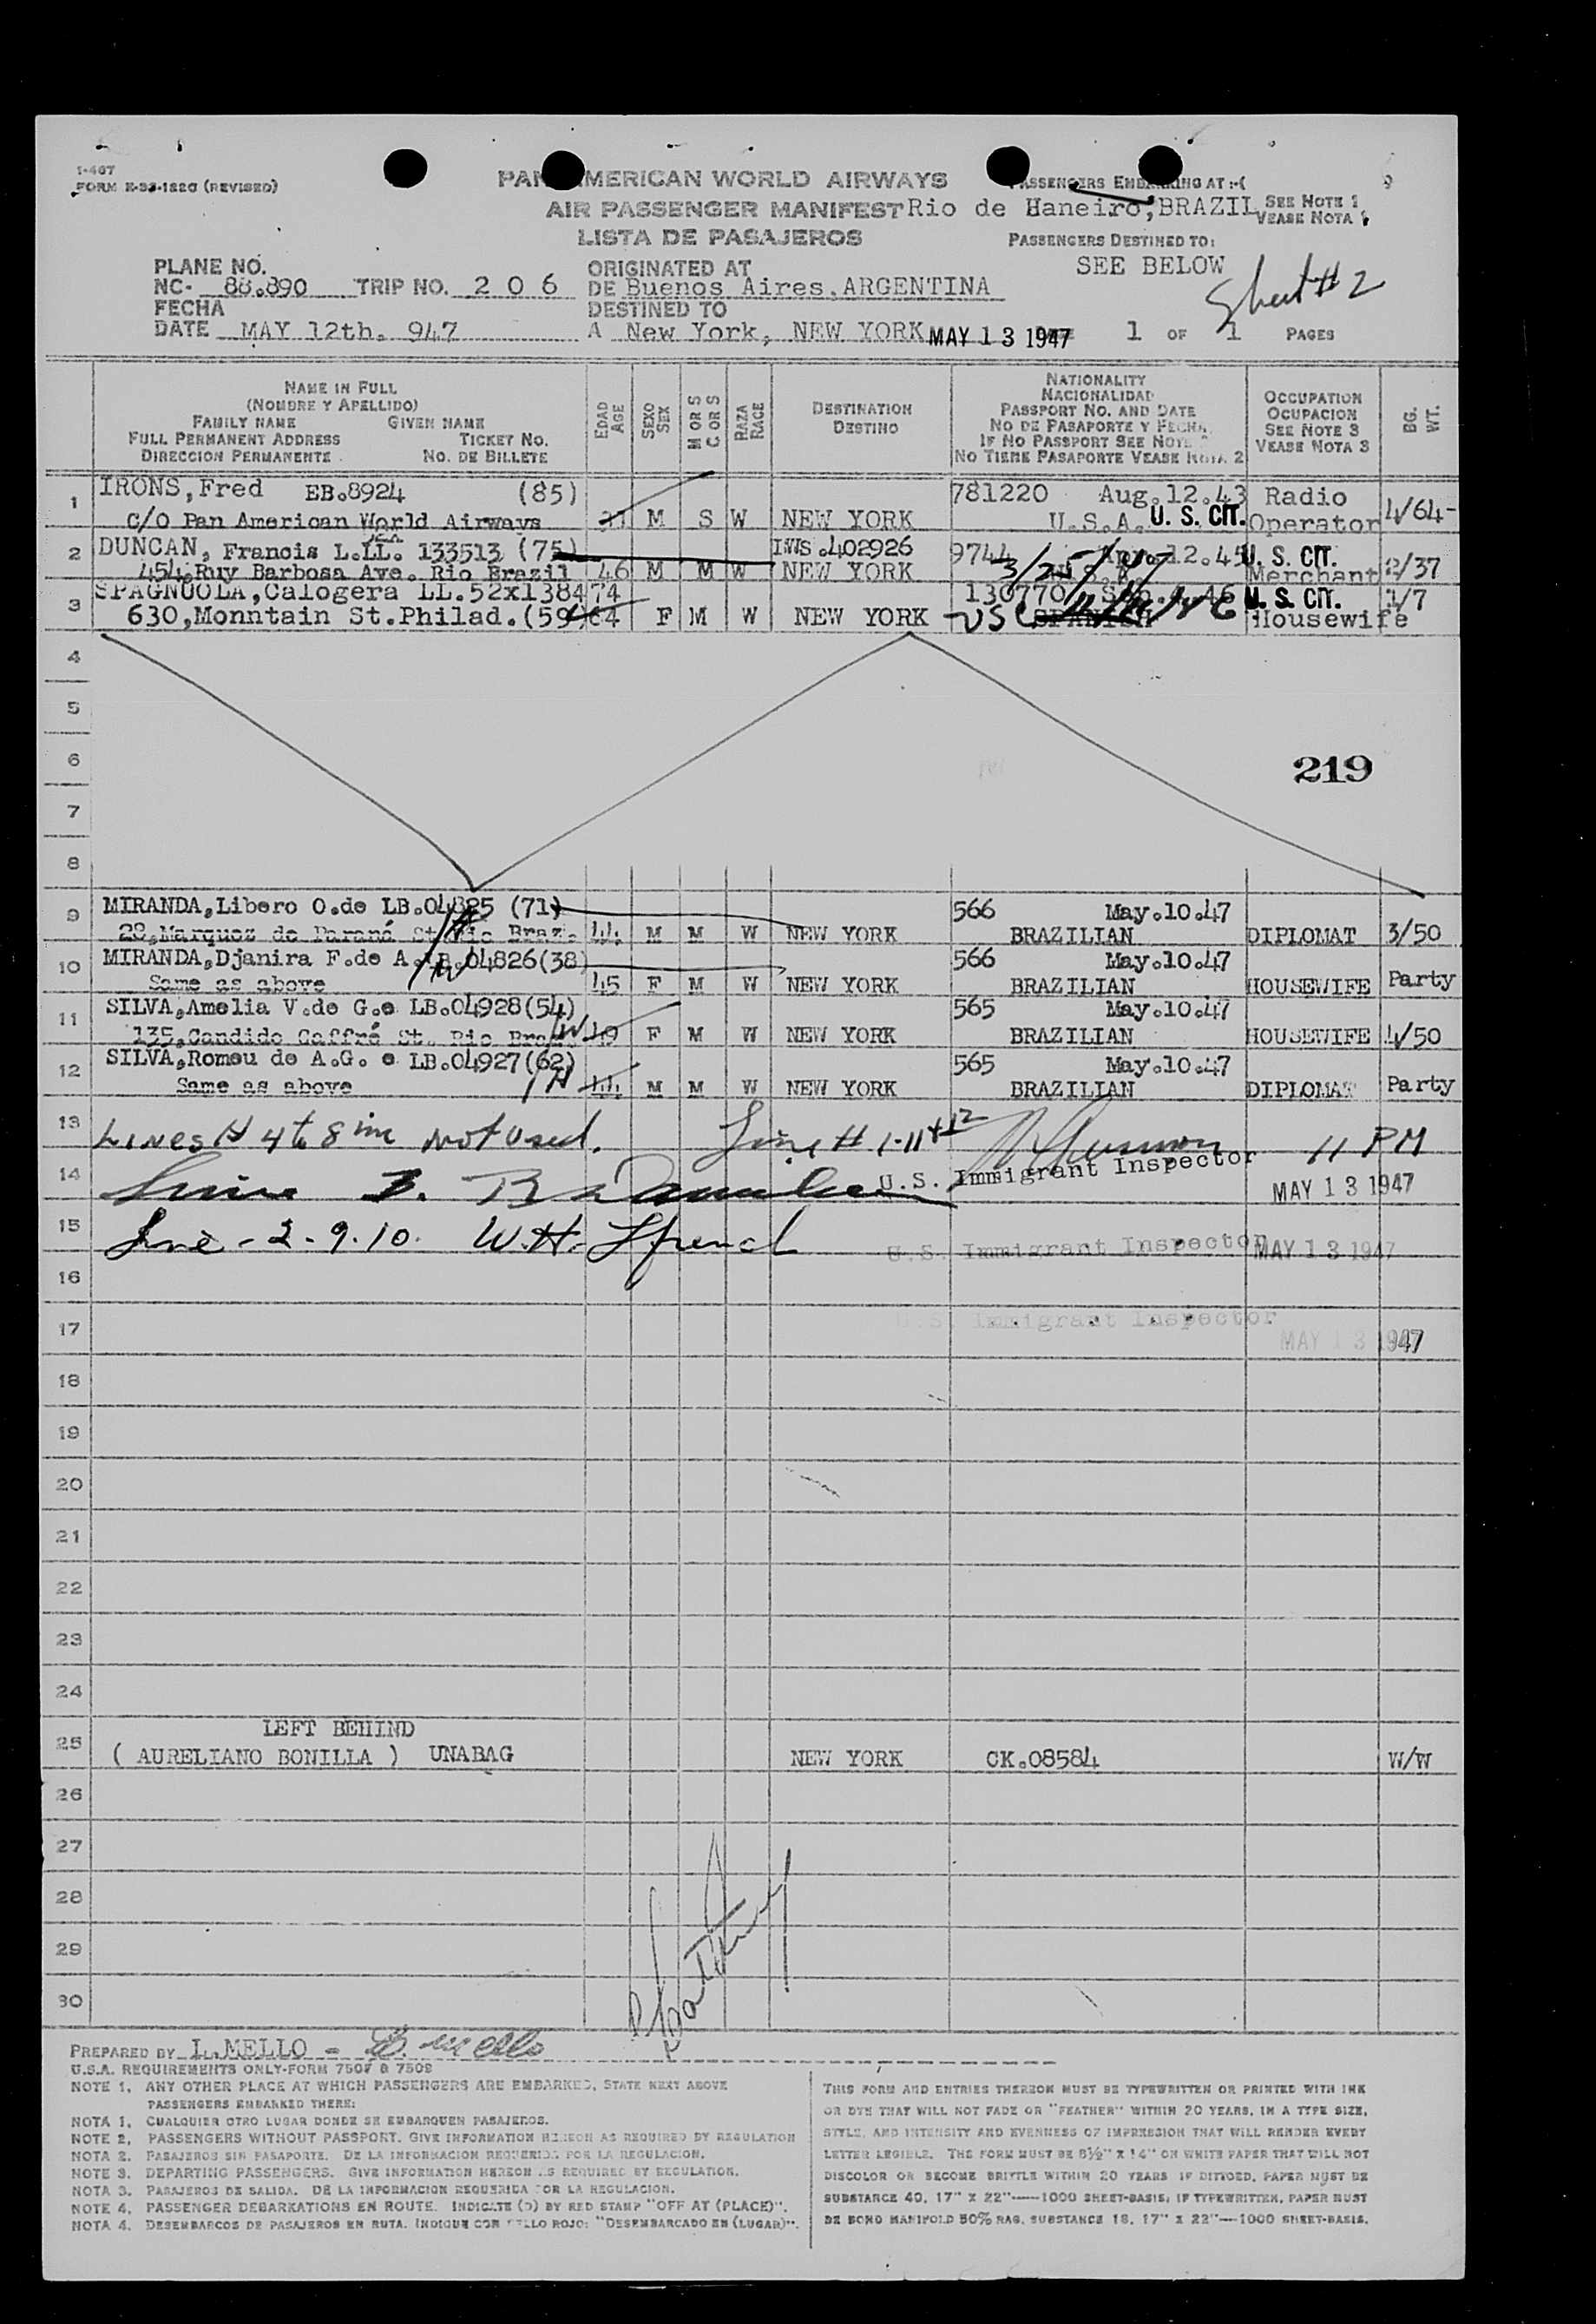 1-467
FORM E-33-122G (REVISED)
PAN AMERICAN WORLD AIRWAYS
AIR PASSENGER MANIFEST
LISTA DE PASAJEROS
PASSENGERS EMBARKING AT :-(
Rio de Haneiro, BRAZIL
SEE NOTE 1
VEASE NOTA 1
PASSENGERS DESTINED TO:
SEE BELOW
Sheet # 2
PLANE NO.
NC- 88.890 TRIP NO. 2 0 6
ORIGINATED AT
DE Buenos Aires, ARGENTINA
FECHA
DATE MAY 12th. 947
DESTINED TO
A New York, NEW YORK MAY 13 1947 1 OF 1 PAGES
NAME IN FULL
(NOMBRE Y APELLIDO)
FAMILY NAME GIVEN NAME
FULL PERMANENT ADDRESS TICKET NO.
DIRECCION PERMANENTE NO. DE BILLETE
EDAD AGE
SEXO SEX
M OR S C OR S
RAZA RACE
DESTINATION
DESTINO
NATIONALITY
NACIONALIDAD
PASSPORT NO. AND DATE
NO DE PASAPORTE Y FECHA
IF NO PASSPORT SEE NOTE 2
NO TIENE PASAPORTE VEASE NOTA 2
OCCUPATION
OCUPACION
SEE NOTE 3
VEASE NOTA 3
BG. WT.
1 IRONS, Fred EB.8924 (85) 781220 Aug.12.43 Radio 4/64-
C/O Pan American World Airways M S W NEW YORK U.S.A. U. S. CIT. Operator
2 DUNCAN, Francis L. LL. 133513 (75) IWS.402926 9744 12.45 U. S. CIT. 2/37
454, Ruy Barbosa Ave. Rio Brazil 46 M M W NEW YORK Merchant
3 SPAGNUOLA, Calogera LL.52x138474 130770 Sep.4.46 U. S. CIT. 1/7
630, Monntain St. Philad. (59) 64 F M W NEW YORK USC SPANISH Housewife
4
5
6
219
7
8
9 MIRANDA, Libero O.de LB.04825 (71) 566 May.10.47
28, Marquez de Paraná St. Rio Braz. 44 M M W NEW YORK BRAZILIAN DIPLOMAT 3/50
10 MIRANDA, Djanira F.de A. LB.04826 (38) 566 May.10.47
Same as above 45 F M W NEW YORK BRAZILIAN HOUSEWIFE Party
11 SILVA, Amelia V.de G.e LB.04928 (54) 565 May.10.47
135, Candido Gaffré St. Rio Braz 49 F M W NEW YORK BRAZILIAN HOUSEWIFE 4/50
12 SILVA, Romeu de A.G. e LB.04927 (62) 565 May.10.47
Same as above 44 M M W NEW YORK BRAZILIAN DIPLOMAT Party
13 Lines # 4 to 8 inc Not Used. Line # 1-11+12 11 PM
14 Line 3. U.S. Immigrant Inspector MAY 13 1947
15 Line - 2 - 9 . 10. W.H. French U.S. Immigrant Inspector MAY 13 1947
16
17 U.S. Immigrant Inspector MAY 13 1947
18
19
20
21
22
23
24
LEFT BEHIND
25 ( AURELIANO BONILLA ) UNABAG NEW YORK CK.08584 W/W
26
27
28
29
30
PREPARED BY L.MELLO - L. Mello
U.S.A. REQUIREMENTS ONLY-FORM 7507 & 7509
NOTE 1. ANY OTHER PLACE AT WHICH PASSENGERS ARE EMBARKED, STATE NEXT ABOVE
PASSENGERS EMBARKED THERE:
NOTA 1. CUALQUIER OTRO LUGAR DONDE SE EMBARQUEN PASAJEROS.
NOTE 2. PASSENGERS WITHOUT PASSPORT. GIVE INFORMATION HEREON AS REQUIRED BY REGULATION
NOTA 2. PASAJEROS SIN PASAPORTE. DE LA INFORMACION REQUERIDA POR LA REGULACION.
NOTE 3. DEPARTING PASSENGERS. GIVE INFORMATION HEREON AS REQUIRED BY REGULATION.
NOTA 3. PASAJEROS DE SALIDA. DE LA INFORMACION REQUERIDA POR LA REGULACION.
NOTE 4. PASSENGER DEBARKATIONS EN ROUTE. INDICATE (D) BY RED STAMP "OFF AT (PLACE)".
NOTA 4. DESEMBARCOS DE PASAJEROS EN RUTA. INDIQUE CON SELLO ROJO: "DESEMBARCADO EN (LUGAR)".
THIS FORM AND ENTRIES THEREON MUST BE TYPEWRITTEN OR PRINTED WITH INK
OR DYE THAT WILL NOT FADE OR "FEATHER" WITHIN 20 YEARS, IN A TYPE SIZE,
STYLE, AND INTENSITY AND EVENNESS OF IMPRESSION THAT WILL RENDER EVERY
LETTER LEGIBLE. THE FORM MUST BE 8½" X 14" ON WHITE PAPER THAT WILL NOT
DISCOLOR OR BECOME BRITTLE WITHIN 20 YEARS IF DITTOED, PAPER MUST BE
SUBSTANCE 40, 17" X 22"——1000 SHEET-BASIS; IF TYPEWRITTEN, PAPER MUST
BE BOND MANIFOLD 50% RAG, SUBSTANCE 18, 17" X 22"—1000 SHEET-BASIS.